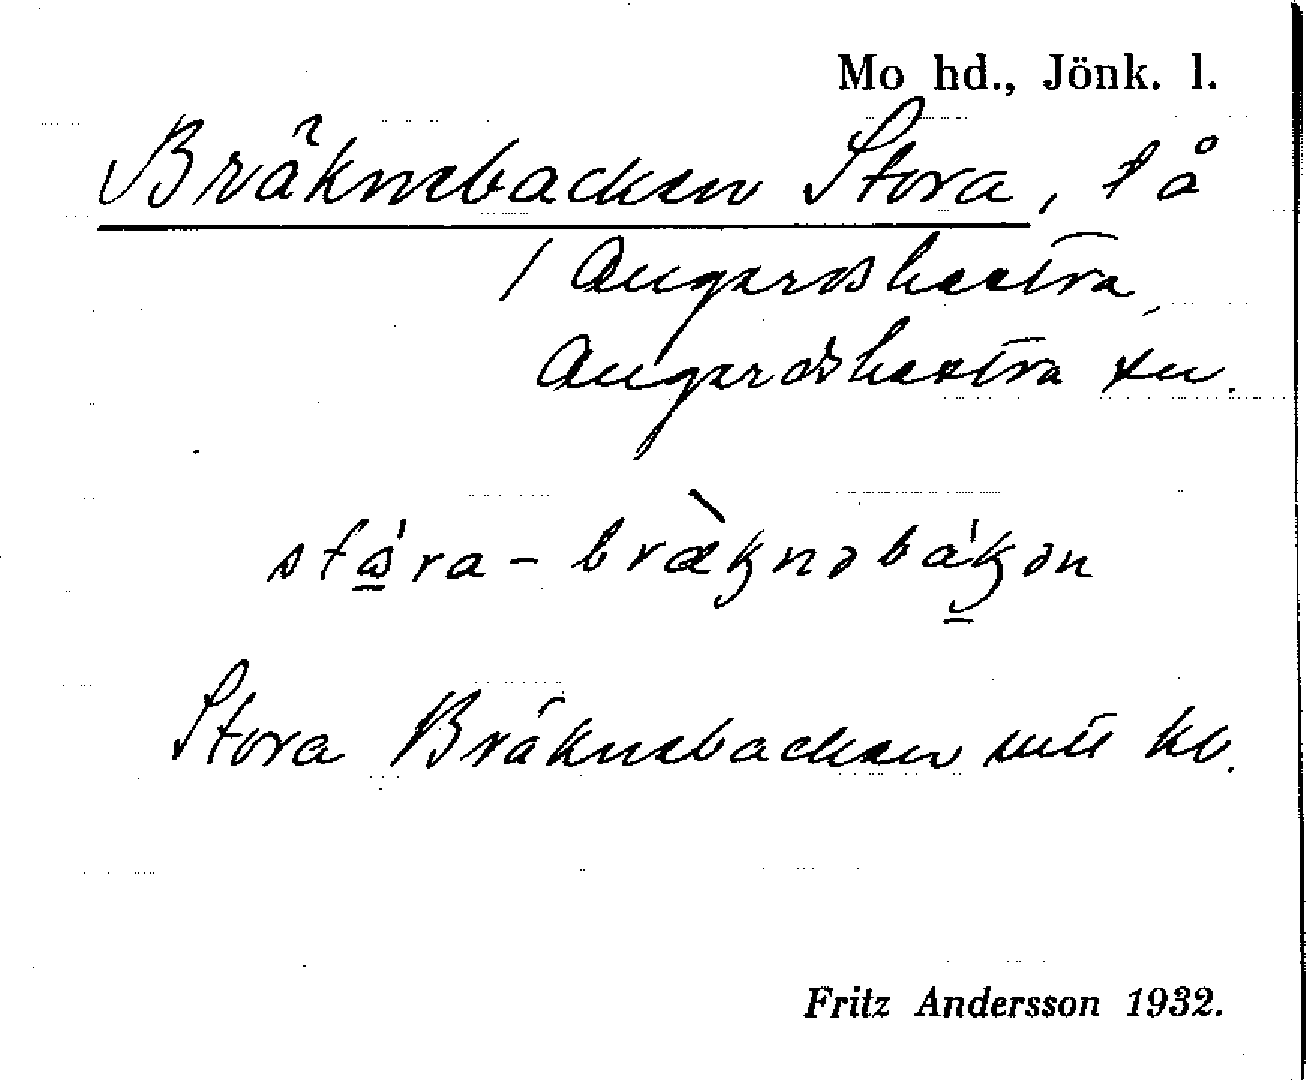 Mo hd., Jönk. l.
Bräknebacken Stora, l å
/ Angerdshestra,
Angerdshestra sn.
stǻ̱ra-bræ̀knəbáḵən
Stora Bräknebacken utit kv.
Fritz Andersson 1932.